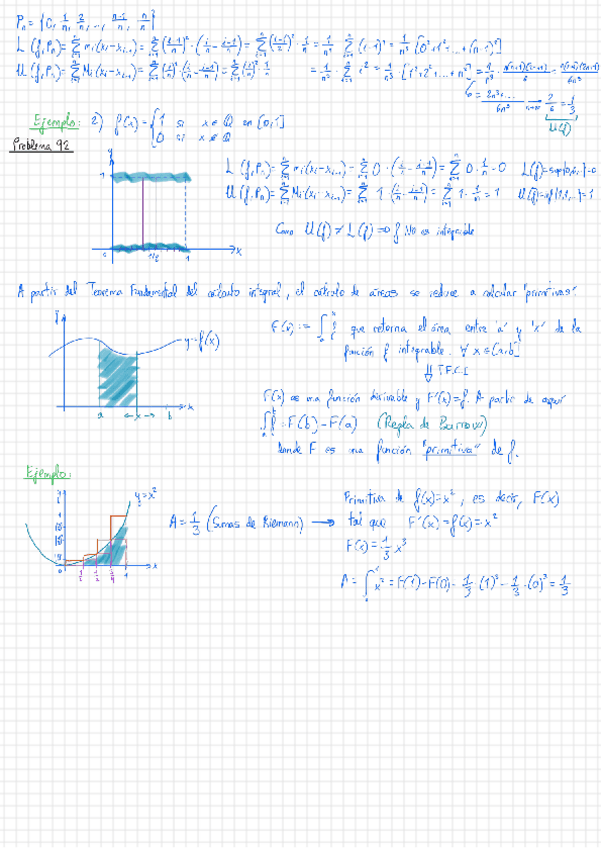 Pₙ = {0, 1/n, 2/n, ..., n-1/n, n/n}
L (f, Pₙ) = Σ mᵢ(xᵢ - xᵢ₋₁) = Σ (i-1/n)² · (i/n - i-1/n) = Σ (i-1/n)² · 1/n = 1/n³ Σ (i-1)² = 1/n³ [0² + 1² + ... + (n-1)²]
U (f, Pₙ) = Σ Mᵢ(xᵢ - xᵢ₋₁) = Σ (i/n)² · (i/n - i-1/n) = Σ (i/n)² · 1/n = 1/n³ · Σ i² = 1/n³ · [1² + 2² + ... + n²] =
= 2n³+... / 6n³ → 2/6 = 1/3
U(f)
Ejemplo: 2) f(x) = { 1 si x ∈ Q en [0,1]
0 si x ∉ Q
Problema 92
y
1
0
1
x
L (f, Pₙ) = Σ mᵢ(xᵢ - xᵢ₋₁) = Σ 0 · (i/n - i-1/n) = Σ 0 · 1/n = 0
U (f, Pₙ) = Σ Mᵢ(xᵢ - xᵢ₋₁) = Σ 1 · (i/n - i-1/n) = Σ 1 · 1/n = 1
Como U(f) ≠ L(f) ⇒ f No es integrable
A partir del Teorema Fundamental del cálculo integral, el cálculo de áreas se reduce a calcular "primitivas".
y = f(x)
a
← x →
b
x
F(x) := ∫ f que retorna el área entre 'a' y 'x' de la
función f integrable. ∀ x ∈ [a,b]
⇓ T.F.C.I
F(x) es una función derivable y F'(x) = f. A partir de aquí
∫ f = F(b) - F(a) (Regla de Barrow)
Donde F es una función "primitiva" de f.
Ejemplo:
y = x²
1
x
A = 1/3 (Sumas de Riemann) →
Primitiva de f(x) = x², es decir, F(x)
tal que F'(x) = f(x) = x²
F(x) = 1/3 x³
A = ∫ x² = F(1) - F(0) = 1/3 · (1)³ - 1/3 · (0)³ = 1/3